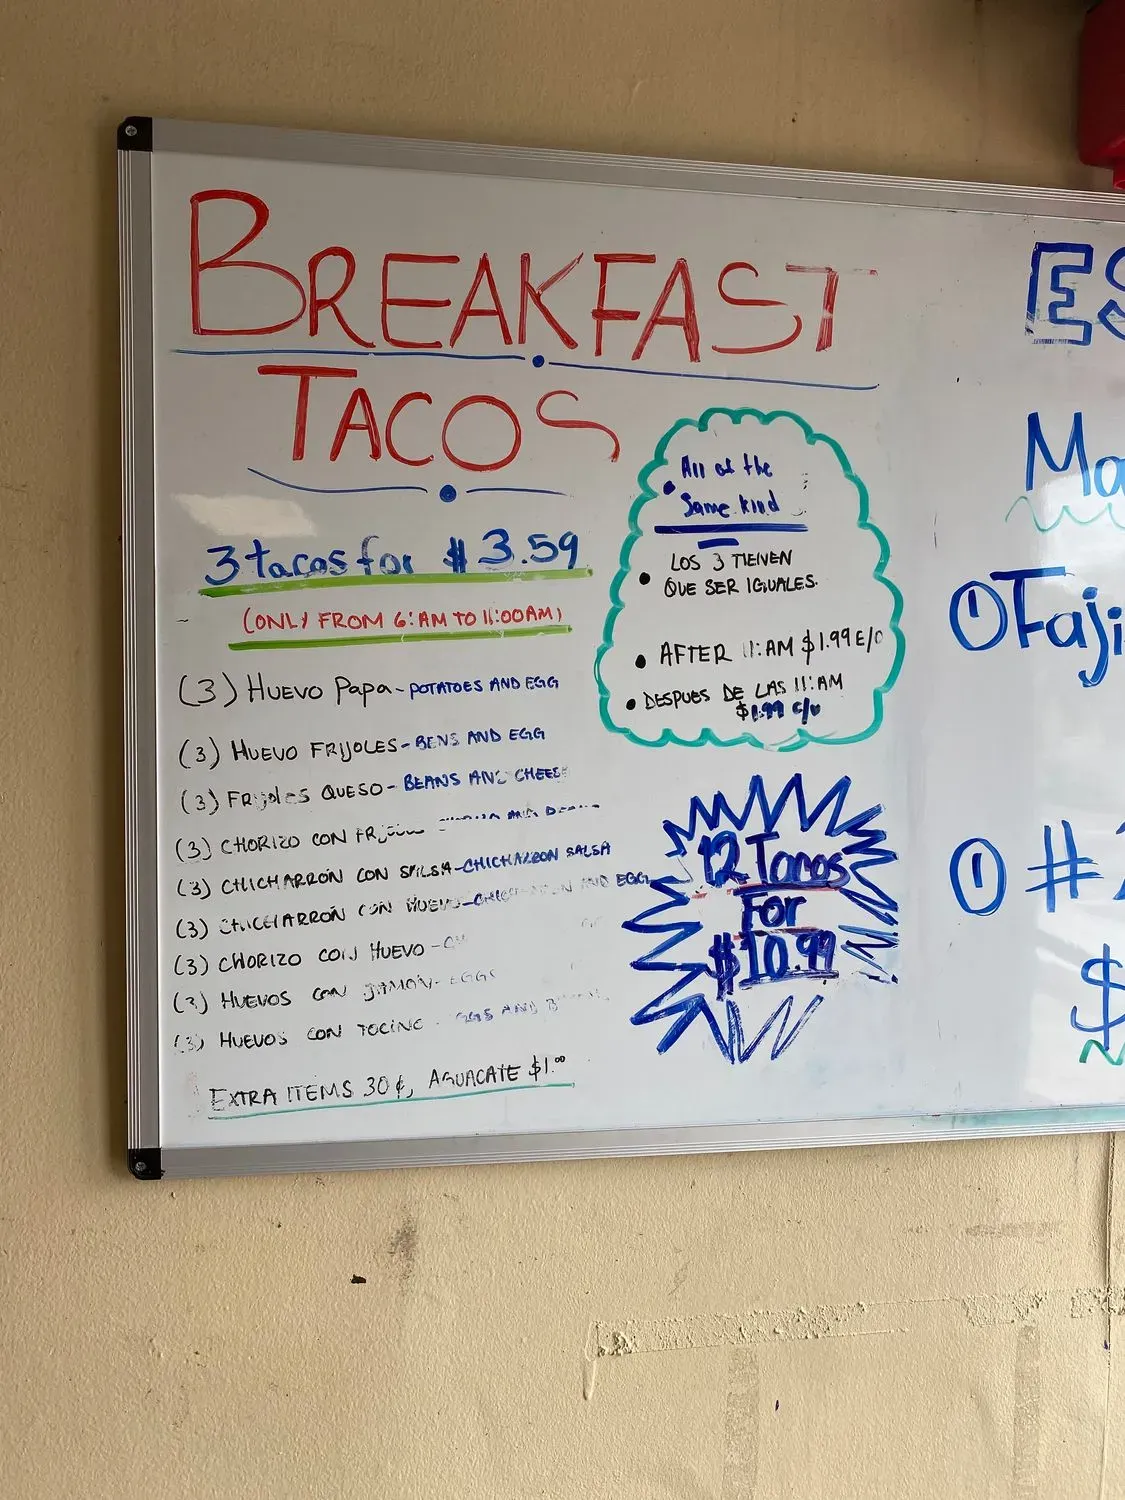 BREAKFAST
TACOS
3 tacos for $3.59
(ONLY FROM 6:AM TO 11:00AM)
(3) HUEVO Papa - POTATOES AND EGG
(3) HUEVO FRIJOLES - BENS AND EGG
(3) FRIJOLES QUESO - BEANS AND CHEESE
(3) CHORIZO CON
(3) CHICHARRON CON SALSA - CHICHARRON SALSA
(3) CHICHARRON CON HUEVO - AND EGG
(3) CHORIZO CON HUEVO -
(3) HUEVOS CON JAMON - EGGS
(3) HUEVOS CON TOCINO - EGGS AND
EXTRA ITEMS 30¢, AGUACATE $1.00
All of the
Same kind
LOS 3 TIENEN
QUE SER IGUALES.
AFTER 11:AM $1.99 E/O
DESPUES DE LAS 11:AM
$1.99 c/u
12 Tacos
For
$10.99
ES
Ma
① Faji
① #
$